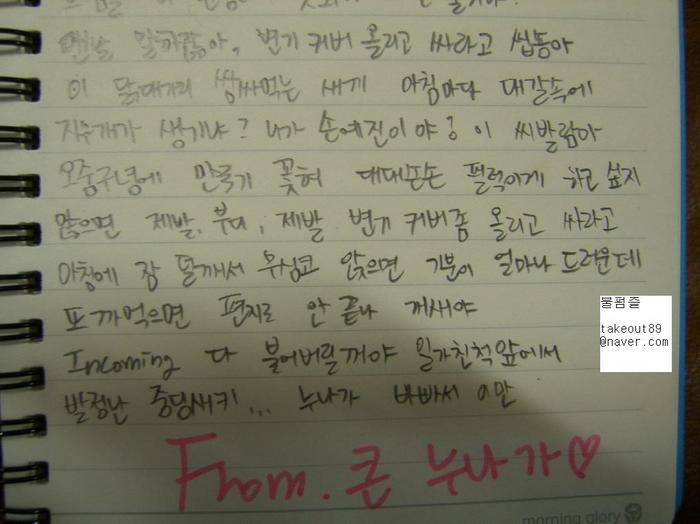 맨날 말하잖아, 변기 커버 올리고 싸라고 씹동아
이 닭대가리 쌈싸먹는 새끼 아침마다 대갈속에
지우개가 생기냐? 내가 손예진이야? 이 씨발람아
오줌구녕에 만국기 꽂혀 대대손손 펄럭이게 하고 싶지
않으면 제발, 부디, 제발 변기 커버좀 올리고 싸라고
아침에 잠 덜깨서 무심코 앉으면 기분이 얼마나 드러운데
또 까먹으면 편지로 안 끝나 개새야
Incoming 다 불어버릴꺼야 일가친척앞에서
발정난 중딩새키... 누나가 바빠서 이만
From. 큰 누나가♡
불펌즐
takeout89
@naver.com
morning glory